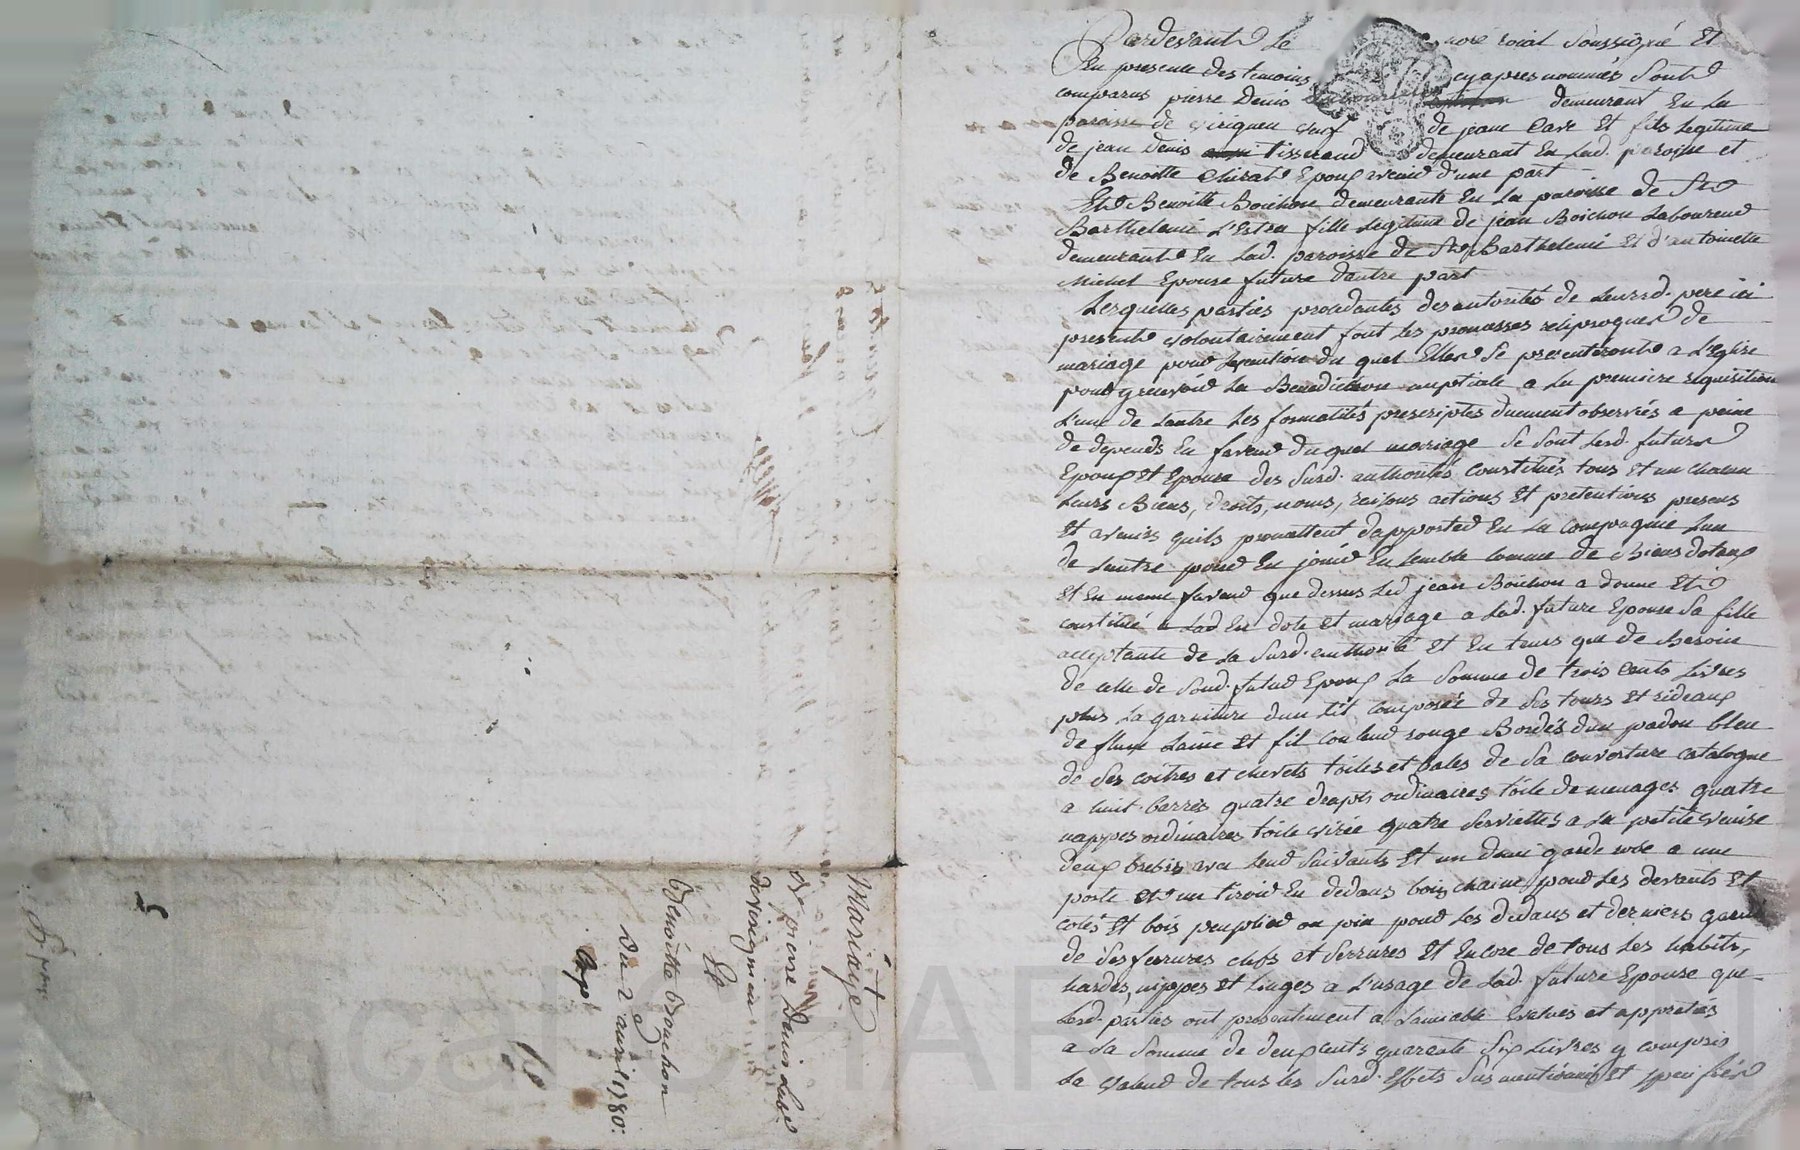 Mariage
de pierre Denis lab.r
de virigneu
Et
Benoitte Bouchon
Du 2 avril 1780.
Pardevant Le nore roial soussigné Et
En presence des temoins cy apres nommés sont
comparus pierre Denis demeurant En la
paroisse de virigneu veuf de jeane Cave Et fils Legitime
de jean Denis tisserand demeurant En lad. paroisse et
de Benoitte Epoux avenir d'une part
Et Benoitte Boichon demeurante En La paroisse de St
Barthelemi L'Estra fille Legitime de jean Boichon Laboureur
demeurant En Lad. paroisse de St Barthelemi Et d'antoinette
Michel Epouse future dautre part
Lesquelles parties procedantes des autorités de Leursd. pere ici
present volontairement font les promesses reciproques de
mariage pour Lexecution du quel Elles se presenteront a L'Eglise
pour y recevoir La Benediction nuptiale a La premiere requisition
L'une de Lautre Les formalités prescriptes duement observées a peine
de depends En faveur du quel mariage se sont Lesd. futurs
Epoux Et Epouse des susd. authorités constitués tous Et un chacun
Leurs Biens, droits, noms, raisons actions Et pretentions presens
Et avenirs quils promettent dapporter En La compagnie Lun
de Lautre pour En jouir Ensemble comme de Biens dotaux
Et En meme faveur que dessus Led jean Boichon a donné Et
constitué a Lad En dote et mariage a Lad. future Epouse sa fille
acceptante de La susd. authorité Et En tems que de besoin
de celle de sond. futur Epoux La somme de trois Cents Livres
plus La garniture dun Lit composée de ses tours Et rideaux
de flure Laine Et fil couleur rouge Bordés dun padou bleu
de ses coitres et chevets toiles et bales de sa couverture catalogne
a huit barres quatre draps ordinaires toile de menages quatre
nappes ordinaires toile quatre serviettes a La petite venise
deux brebis avec Leur suivants Et un demi garde robe a une
porte Et un tiroir En dedans bois chaine pour Les devants Et
cotés Et bois peuplier ou pin pour Les dedans et derniers garni
de ses ferrures clefs et serrures Et Encore de tous Les habits,
hardes, nippes Et Linges a L'usage de Lad. future Epouse que
Lesd. parties ont presentement a Lamiable Evalués et appretiés
a La somme de deux cents quarente six Livres y compris
La valeur de tous les susd. Effets sus mentionnés Et specifiés